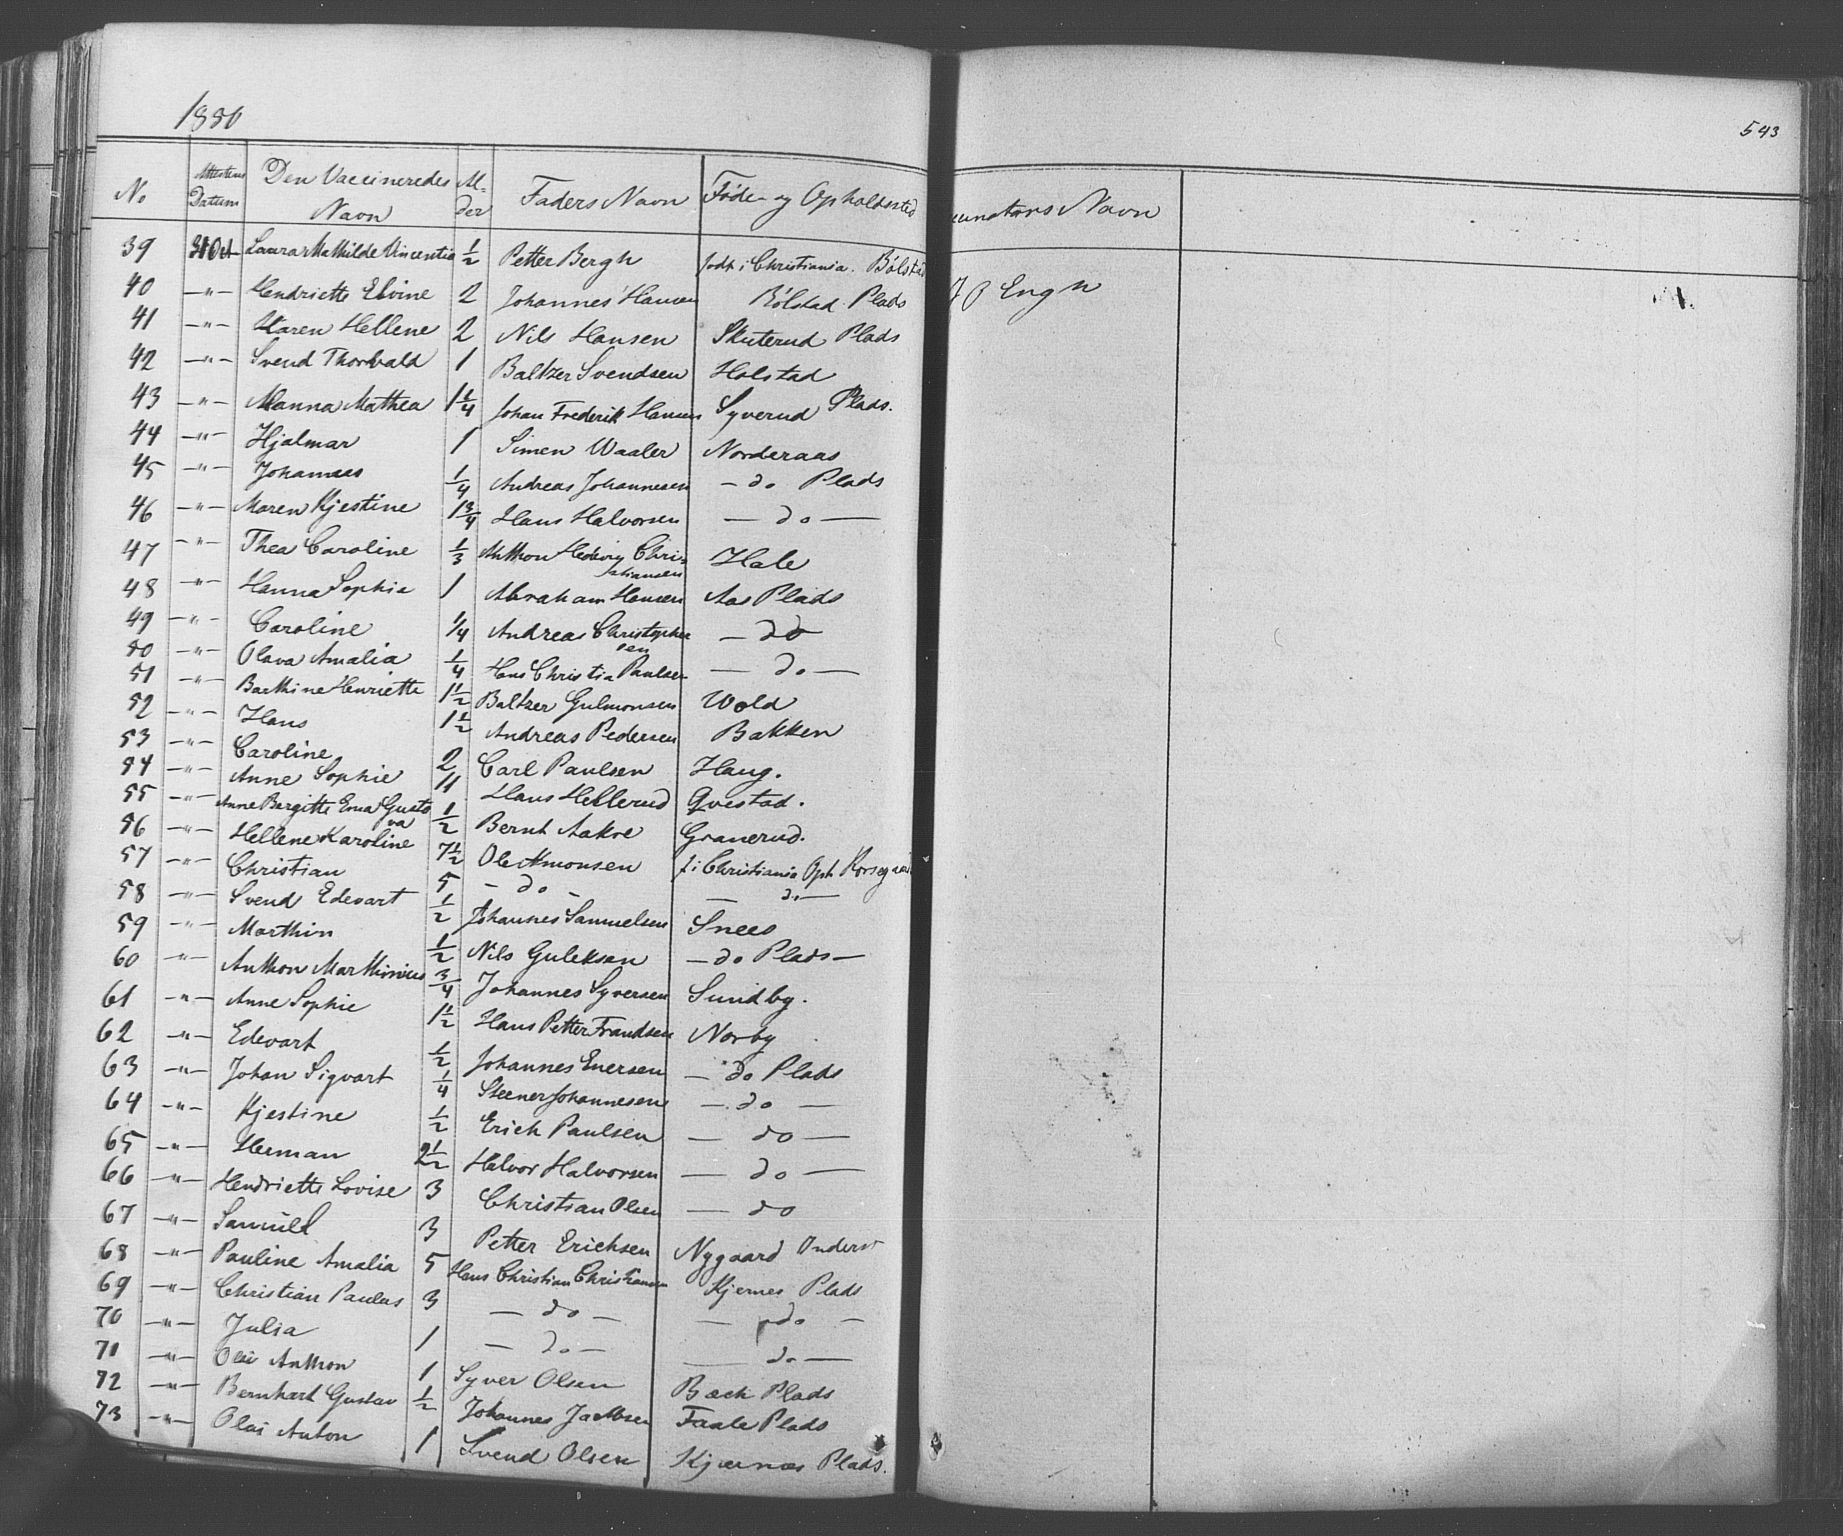 1880
543
No | Attestens Datum | Den Vaccineredes Navn | Alder | Faders Navn | Føde- og Opholdssted | cinators Navn
39 | 31 Oct | Laura Mathilde Vincentia | 1/2 | Petter Bergh | født i Christiania. Bølstad
40 | —"— | Hendriette Elvine | 2 | Johannes Hansen | Bølstad Plads | J P Engh
41 | —"— | Karen Hellene | 2 | Nils Hansen | Skuterud Plads
42 | —"— | Svend Thorvald | 1 | Baltzer Svendsen | Holstad
43 | —"— | Manna Mathea | 1 1/4 | Johan Frederik Hansen | Syverud Plads.
44 | —"— | Hjalmar | 1 | Simen Waaler | Norderaas
45 | —"— | Johannes | 1/4 | Andreas Johannesen | — do Plads
46 | —"— | Maren Kjestine | 1 3/4 | Hans Halvorsen | — do —
47 | —"— | Thea Caroline | 1/3 | Anthon Hedevig Christiansen | Hole
48 | —"— | Hanna Sophie | 1 | Abraham Hansen | Aas Plads
49 | —"— | Caroline | 1/4 | Andreas Christophersen | — do
50 | —"— | Olava Amalia | 1/4 | Hans Christia Paulsen | — do —
51 | —"— | Barthine Henriette | 1 1/2 | Baltzer Gulmonsen | Wold
52 | —"— | Hans | 1 1/2 | Andreas Pedersen | Bakken
53 | —"— | Caroline | 2 | Carl Paulsen | Haug.
54 | —"— | Anne Sophie | 11 | Hans Hellerud | Qvestad.
55 | —"— | Anne Birgitte Ema Gustava | 1/2 | Bernt Aakre | Granerud.
56 | —"— | Hellene Karoline | 7 1/2 | Ole Amonsen | f. i Christiania Oph Korsegaard
57 | —"— | Christian | 5 | — do — | — do —
58 | —"— | Svend Edevart | 1/2 | Johannes Samuelsen | Snees
59 | —"— | Marthin | 1/2 | Nils Guleksen | — do Plads —
60 | —"— | Anthon Marthinius | 3/4 | Johannes Syversen | Sundby.
61 | —"— | Anne Sophie | 1 1/2 | Hans Petter Frandsen | Norby
62 | —"— | Edevart | 1/2 | Johannes Enersen | — do Plads
63 | —"— | Johan Sigvart | 1/4 | Steener Johannesen | — do —
64 | —"— | Kjestine | 1/2 | Erich Paulsen | — do —
65 | —"— | Herman | 2 1/2 | Halvor Halvorsen | — do —
66 | —"— | Hendriette Lovise | 3 | Christian Olsen | — do
67 | —"— | Samuel | 3 | Petter Erichsen | Nygaard Underst
68 | —"— | Pauline Amalia | 5 | Hans Christian Christiansen | Kjernes Plads
69 | —"— | Christian Paulus | 3 | — do — | — do —
70 | —"— | Julia | 1 | — do — | — do —
71 | —"— | Olai Anthon | 1 | Syver Olsen | Bæch Plads
72 | —"— | Bernhart Gustav | 1/2 | Johannes Jacobsen | Faale Plads
73 | —"— | Olai Anton | 1 | Svend Olsen | Kjærnæs Plads.